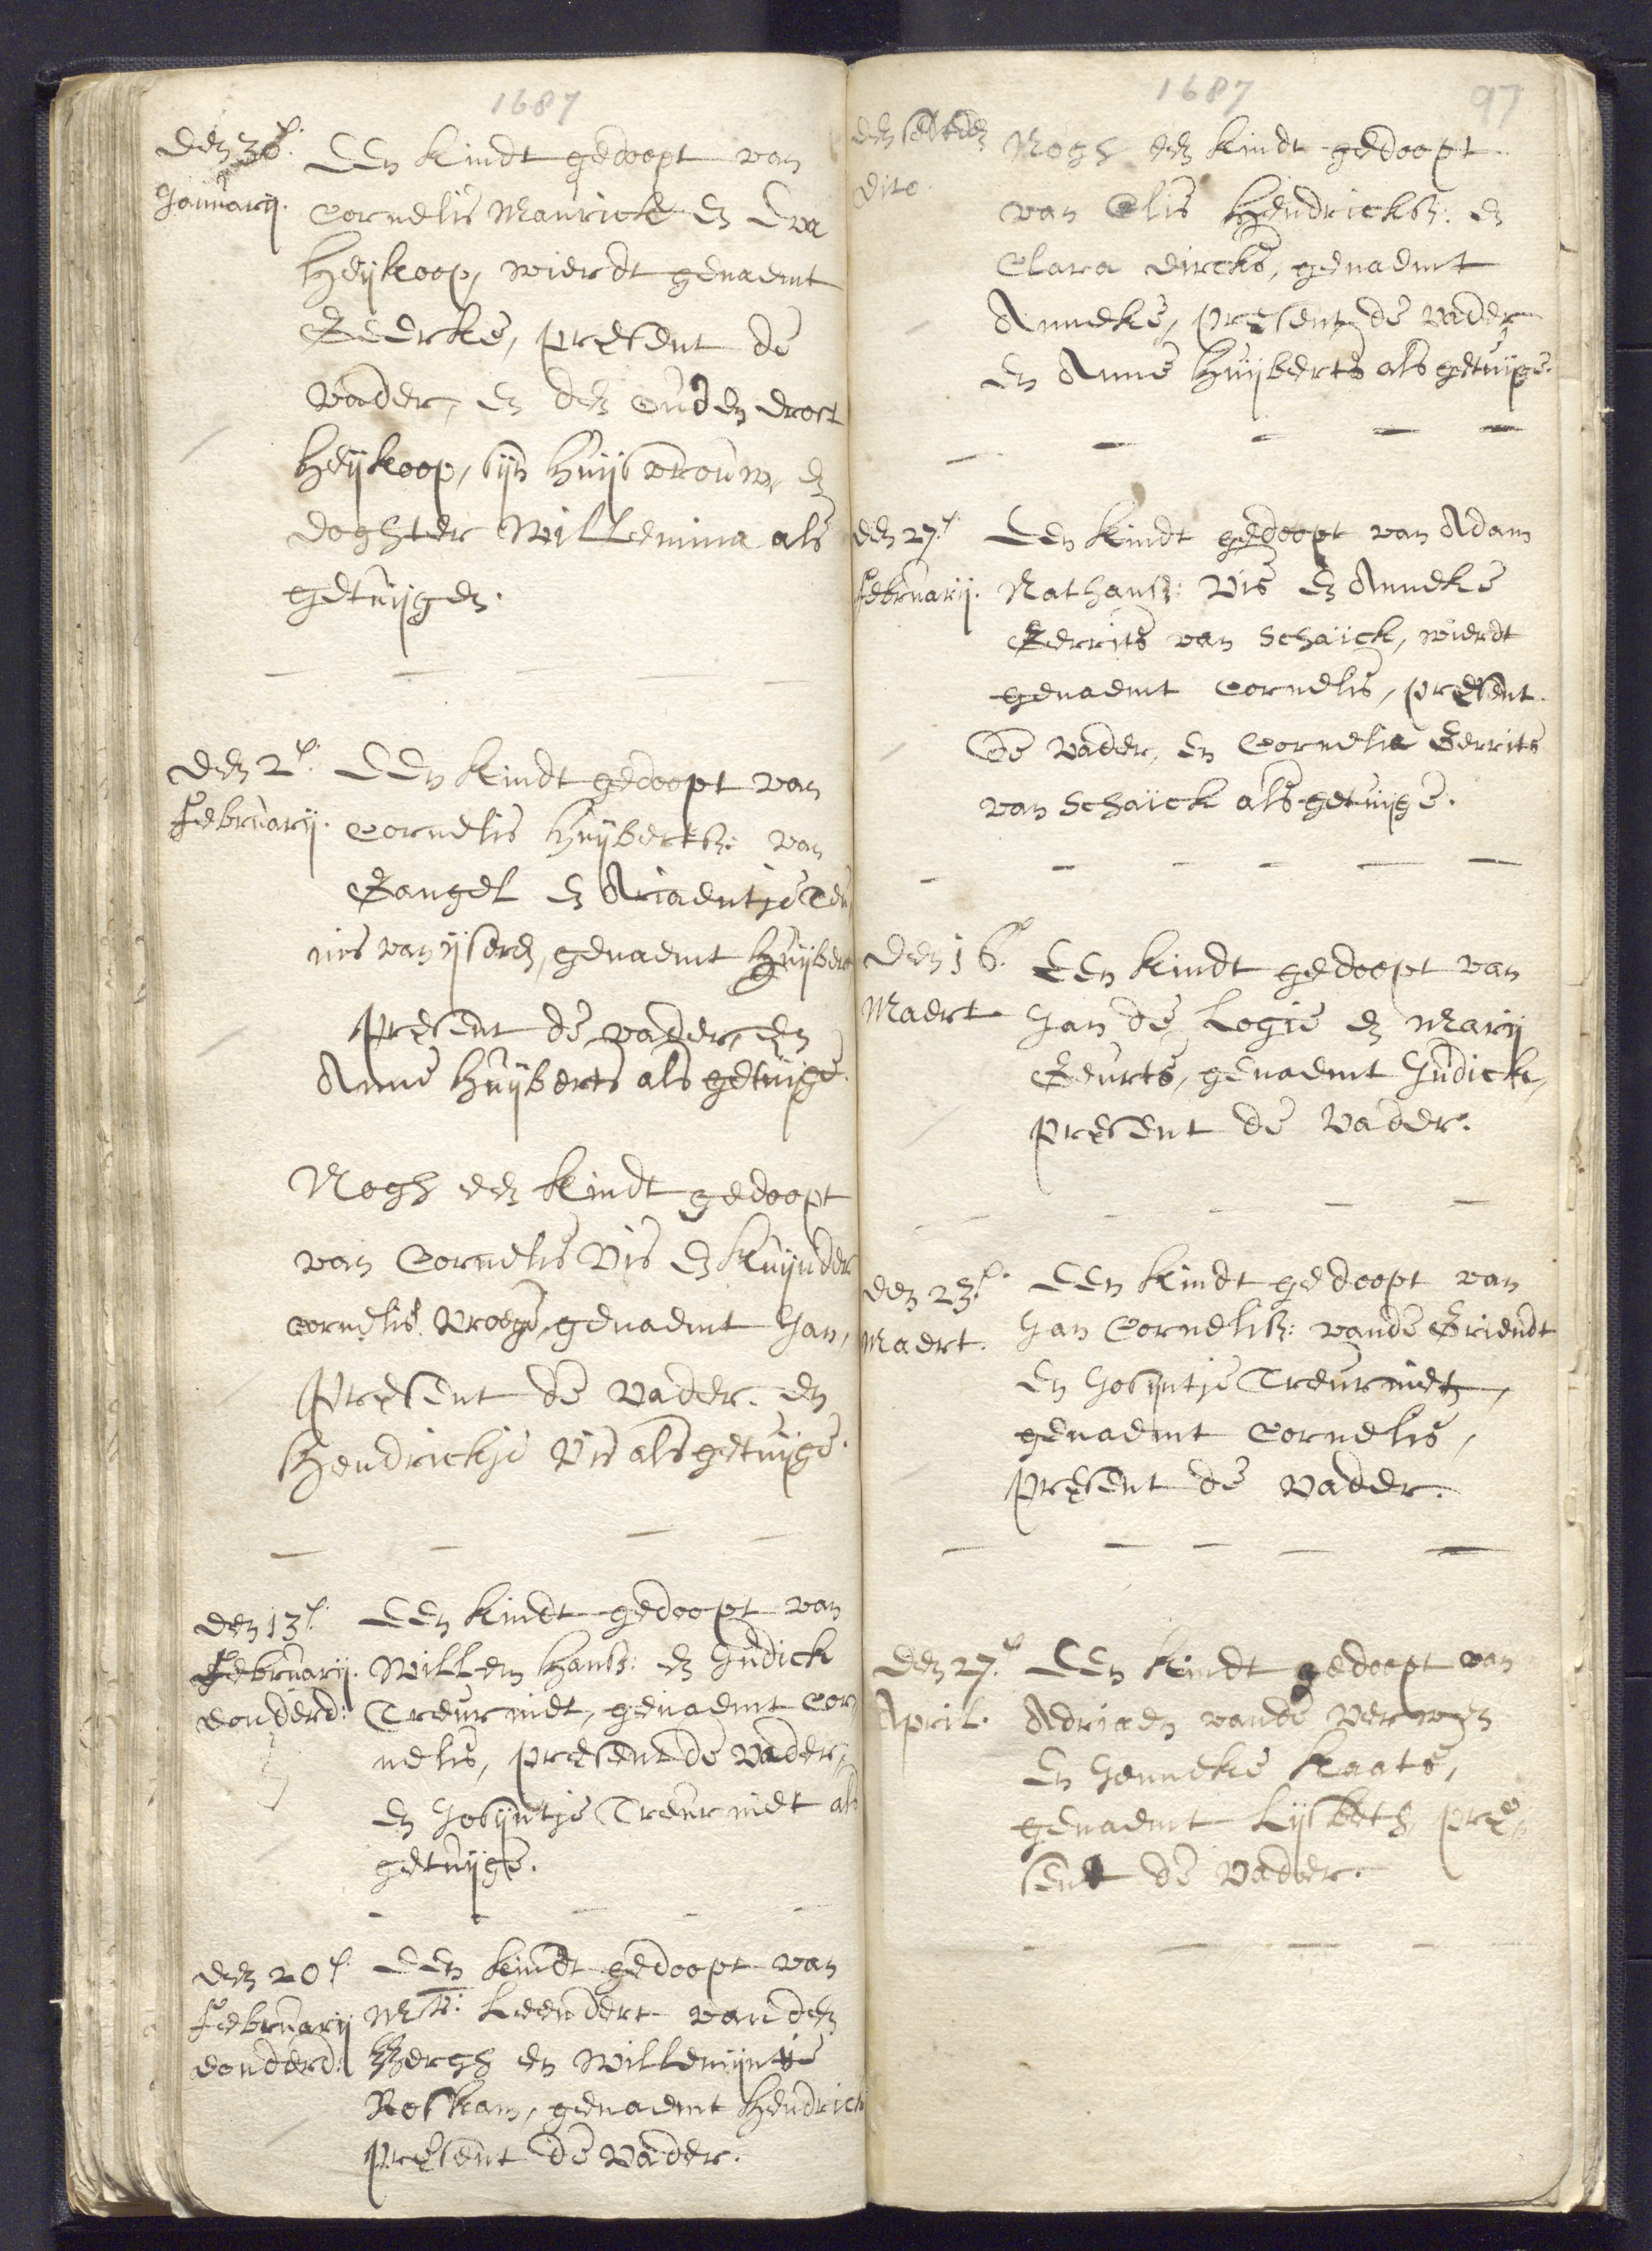 1687
den 30e.
Januarij.
Een kindt gedoopt van
Cornelis Maurick en Eva
Heijkoop, wierdt genaemt
Geerke, present de
vader, en den ouden drost
Heijkoop, sijn huijsvrouw, en
doghter Willemina als
getuijgen.
den 2e.
Februarij.
Een kindt gedoopt van
Cornelis Huijbertsz: van
Gangel en Ariaentje Teu
nis van ijseren, genaemt Huijbert
present de vader, en
Anne Huijberts als getuijge.
Nogh een kindt gedoopt
van Cornelis Vis en Kuijnder
Cornelis Vroege, genaemt Jan,
present de vader. en
Hendrickje Vis als getuijge.
den 13e.
Februarij.
donderd:
Een kindt gedoopt van
Willem Hansz: en Judick
Treurniet, genaemt Cor
nelis, present de vader,
en Josijntje Treurniet als
getuijge.
den 20e.
Februarij
donderd:
Een kindt gedoopt van
Mr: Leendert van den
Bergh en Willemijntie
Roskam, genaemt Hendrick
present de vader.
1687
97
den selven
dito.
Nogh een kindt gedoopt
van Elis Hendricksz: en
Clara Dircks, genaemt
Anneke, present de vader
en Anne Huijberts als getuijge.
den 27e.
Februarij.
Een kindt gedoopt van Adam
Nathansz: Vis en Anneke
Gerrits van Schaick, wierdt
genaemt Cornelis, present
De vader, en Cornelia Gerrits
van Schaick als getuijge.
Den 16e.
Maert
Een kindt gedoopt van
Jan de Logie en Marij
Geurts, genaemt Judick,
present de vader.
den 23e.
Maert.
Een kindt gedoopt van
Jan Cornelisz: vande Griendt
en Josijntje Treurniet,
genaemt Cornelis,
present de vader.
Den 27e.
April.
Een kindt gedoopt van
Adriaen vande Verwen
En Jenneke Kaats,
genaemt Lijsbeth, pre,,
sent de vader.